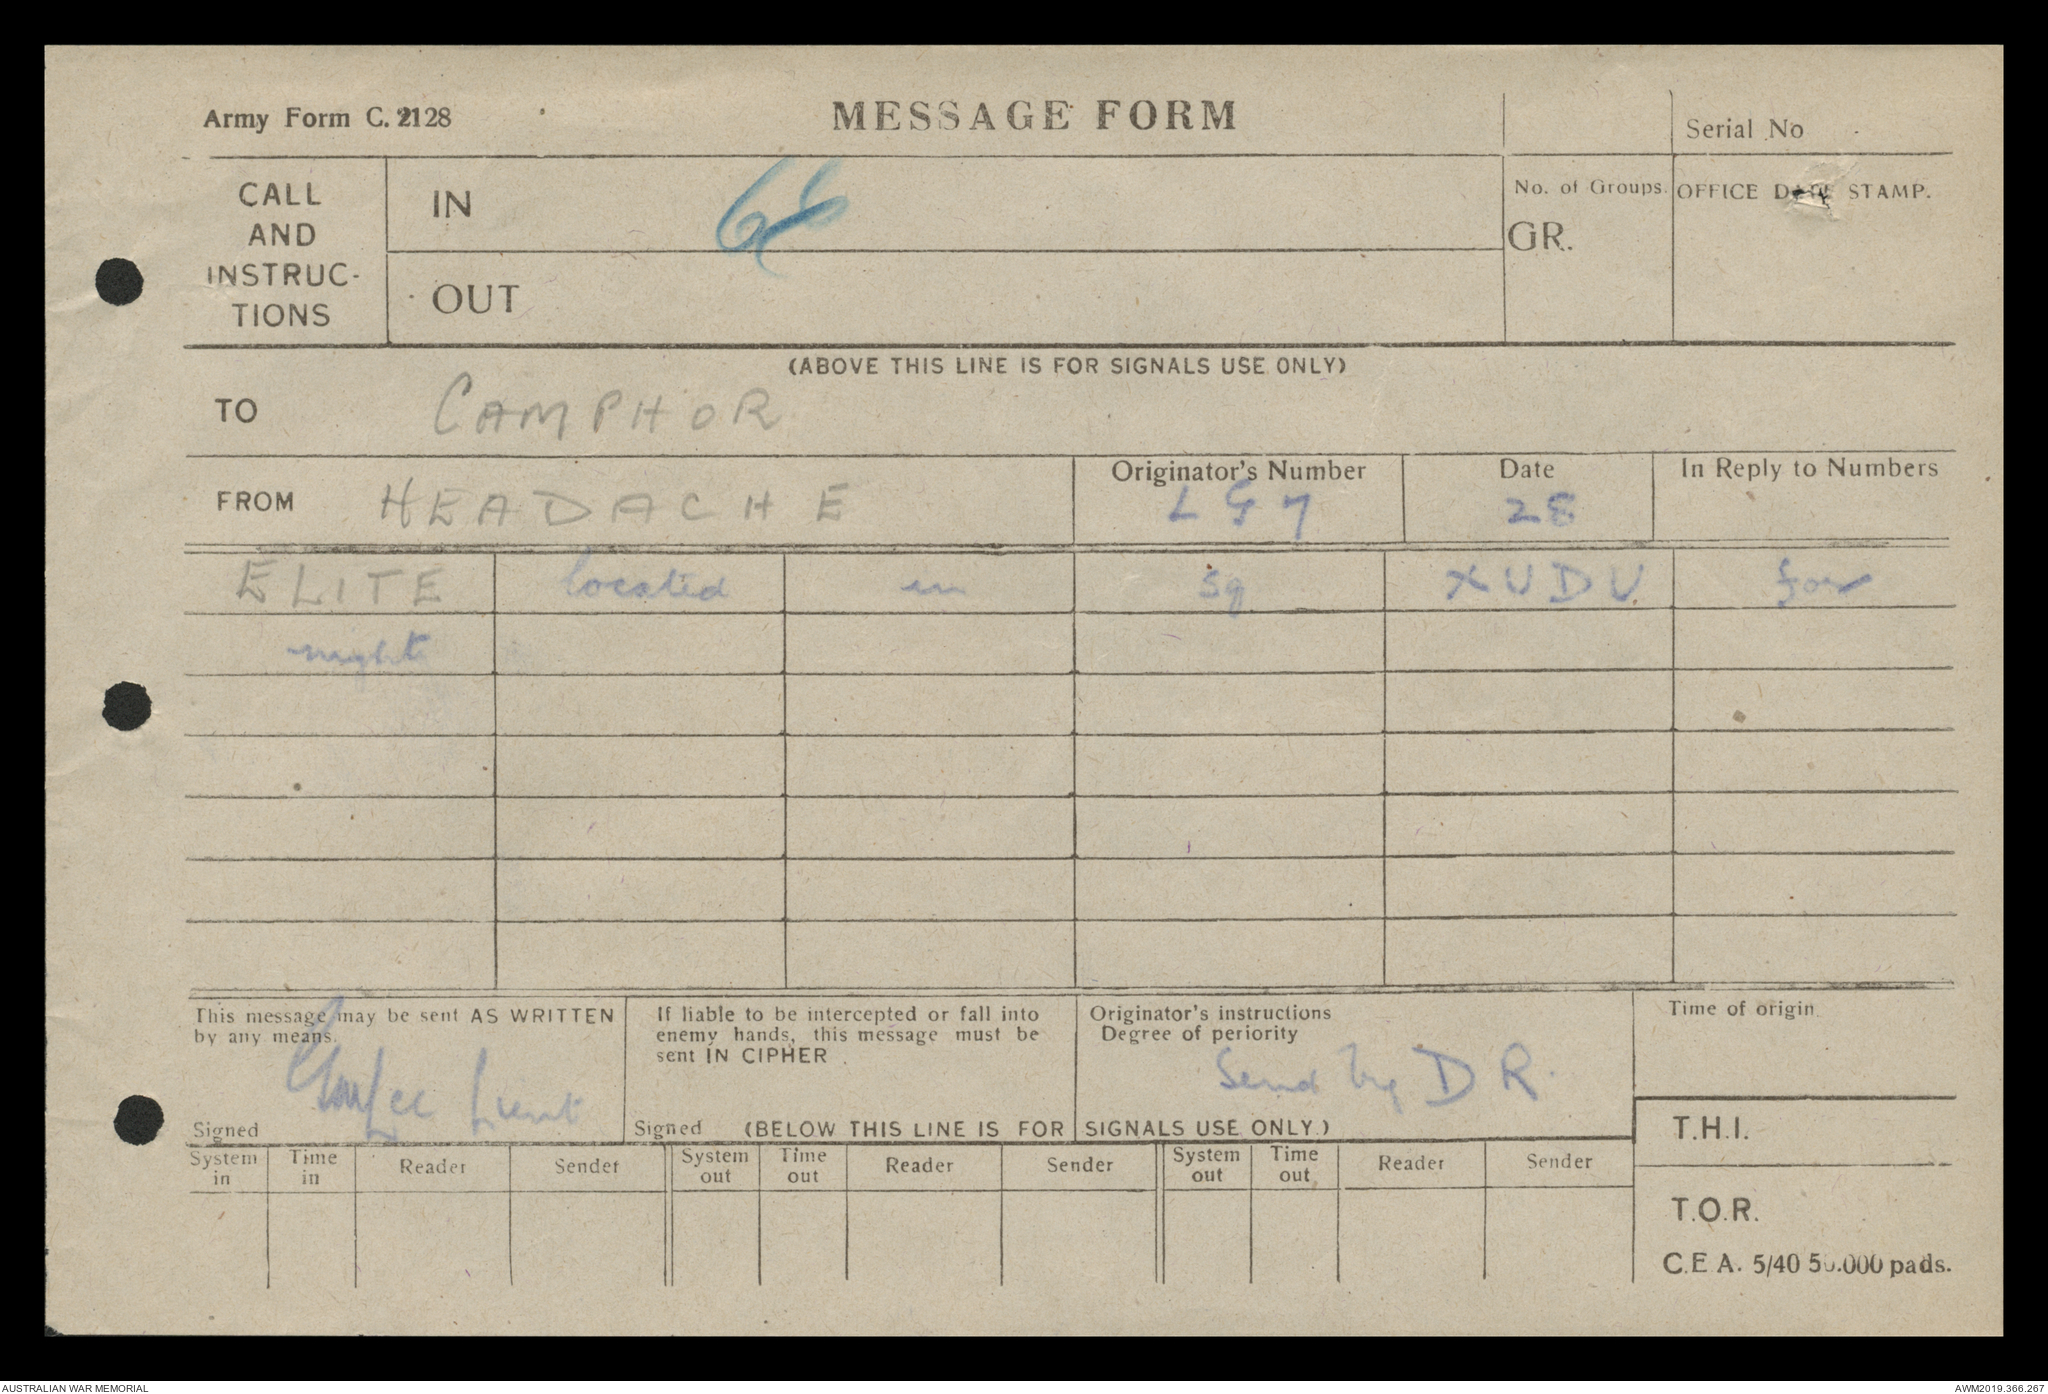 Army Form C. 2128
MESSAGE FORM
Serial No
CALL AND INSTRUC-TIONS
IN
66
OUT
No. of Groups.
GR.
OFFICE DATE STAMP.
(ABOVE THIS LINE IS FOR SIGNALS USE ONLY)
TO CAMPHOR
FROM HEADACHE
Originator's Number
LG7
Date
28
In Reply to Numbers
ELITE located in sq XUDU for
night
This message may be sent AS WRITTEN
by any means.
Lieut
Signed
If liable to be intercepted or fall into
enemy hands, this message must be
sent IN CIPHER
Signed
Originator's instructions
Degree of periority
Send by DR.
Time of origin
(BELOW THIS LINE IS FOR SIGNALS USE ONLY.)
T.H.I.
System in Time in Reader Sender System out Time out Reader Sender System out Time out Reader Sender
T.O.R.
C.E.A. 5/40 50.000 pads.
AUSTRALIAN WAR MEMORIAL
AWM2019.366.267